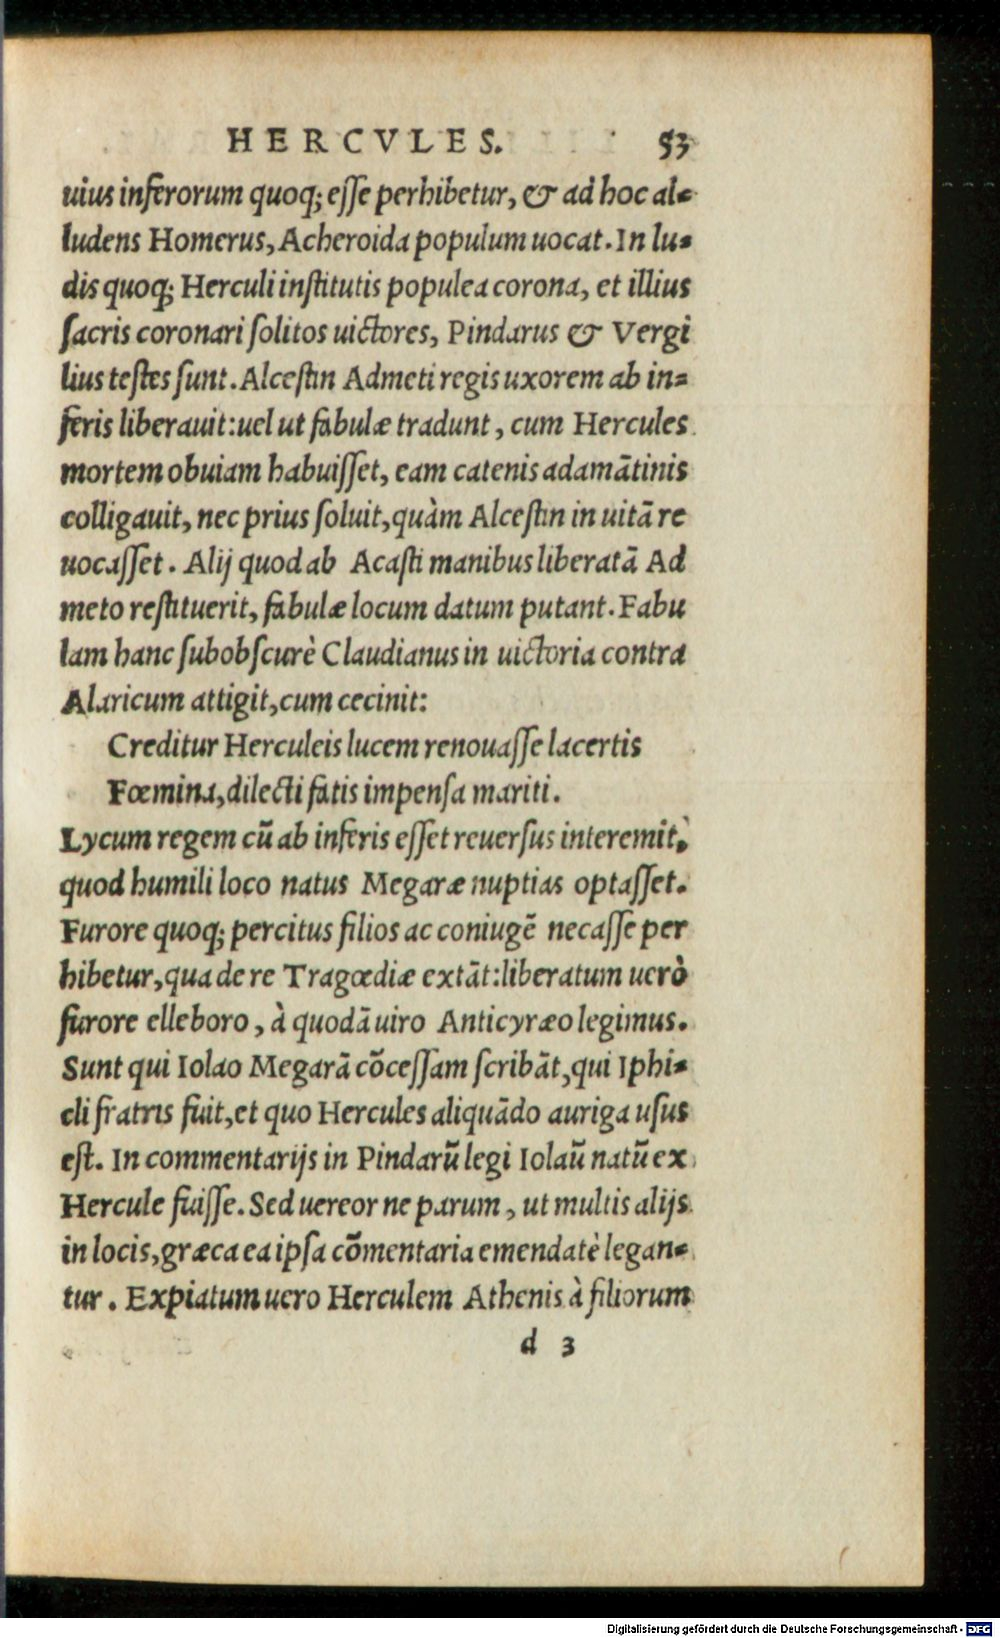 HERCVLES. 53
uius inferorum quoq; eſſe perhibetur, & ad hoc al-
ludens Homerus, Acheroida populum uocat. In lu-
dis quoq; Herculi inſtitutis populea corona, et illius
ſacris coronari ſolitos uictores, Pindarus & Vergi
lius teſtes ſunt. Alceſtin Admeti regis uxorem ab in=
feris liberauit: uel ut fabulæ tradunt, cum Hercules
mortem obuiam habuiſſet, eam catenis adamãtinis
colligauit, nec prius ſoluit, quàm Alceſtin in uitã re
uocaſſet. Alij quod ab Acaſti manibus liberatã Ad
meto reſtituerit, fabulæ locum datum putant. Fabu
lam hanc ſubobſcurè Claudianus in uictoria contra
Alaricum attigit, cum cecinit:
Creditur Herculeis lucem renouaſſe lacertis
Fœmina, dilecti fatis impenſa mariti.
Lycum regem cũ ab inferis eſſet reuerſus interemit,
quod humili loco natus Megaræ nuptias optaſſet.
Furore quoq; percitus filios ac coniugẽ necaſſe per
hibetur, qua de re Tragœdiæ extãt: liberatum uerò
furore elleboro, à quodã uiro Anticyræo legimus.
Sunt qui Iolao Megarã cõceſſam ſcribãt, qui Iphi-
cli fratris fuit, et quo Hercules aliquãdo auriga uſus
eſt. In commentarijs in Pindarũ legi Iolaũ natũ ex
Hercule fuiſſe. Sed uereor ne parum, ut multis alijs
in locis, græca ea ipſa cõmentaria emendatè legan-
tur. Expiatum uero Herculem Athenis à filiorum
d 3
Digitalisierung gefördert durch die Deutsche Forschungsgemeinschaft - DFG